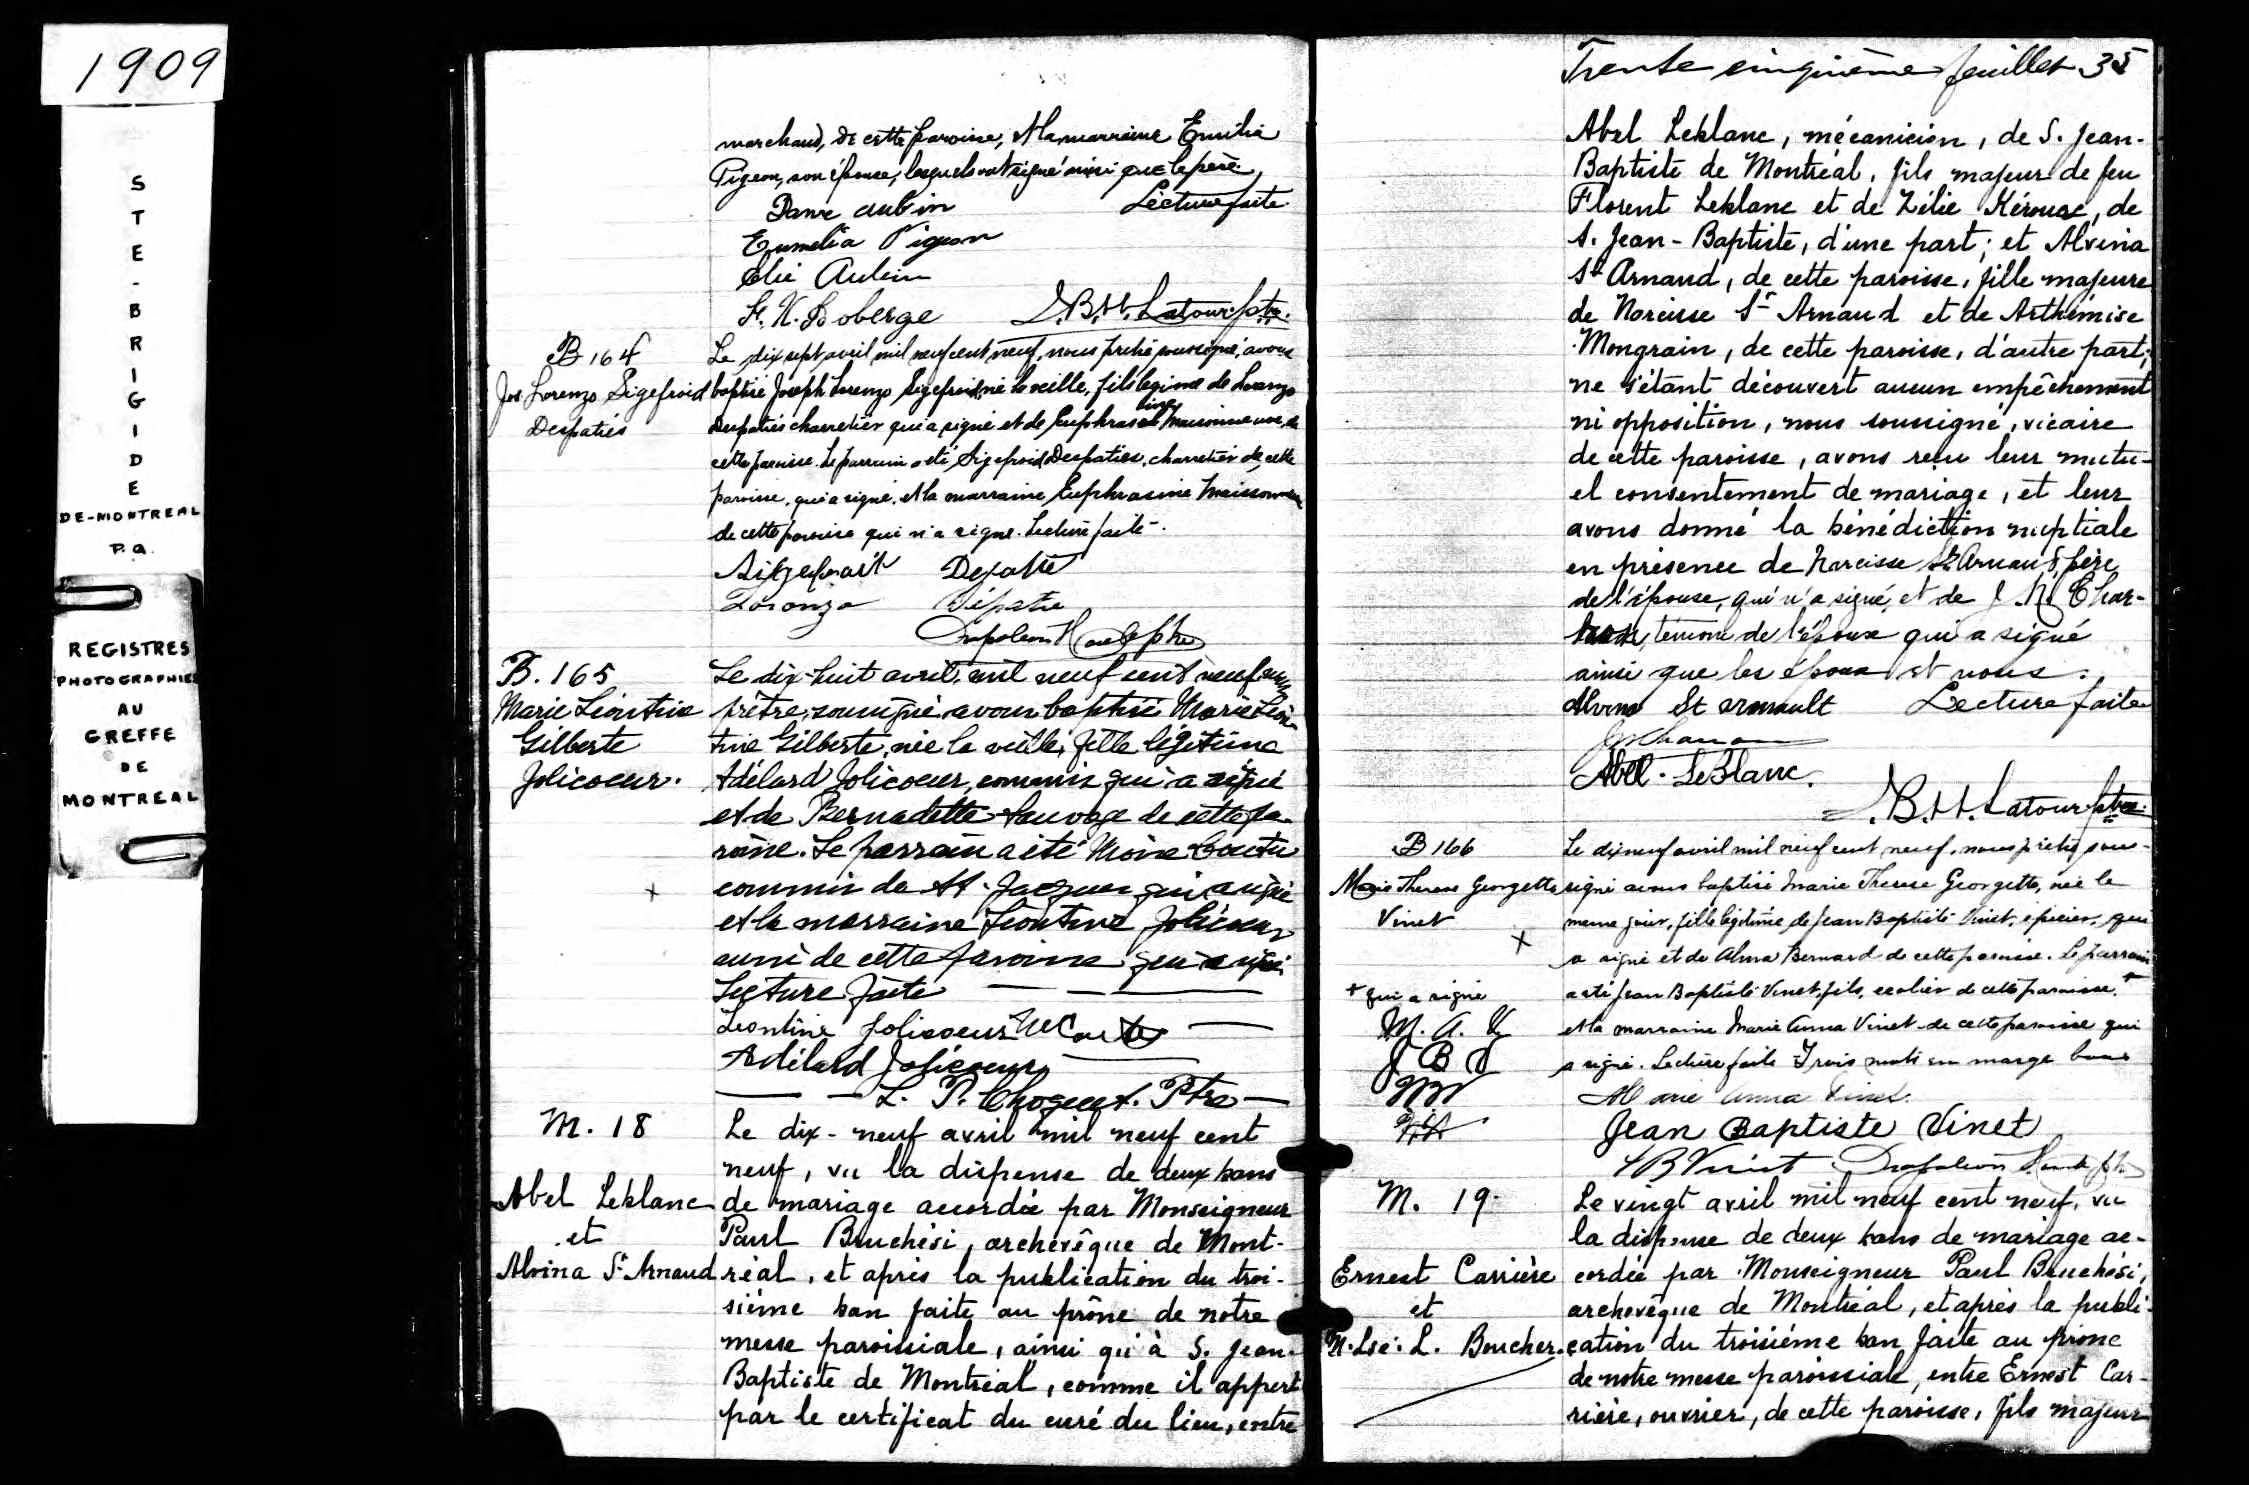 1909
STE-BRIGIDE
DE-MONTREAL
P.Q.
REGISTRES
PHOTOGRAPHIES
AU
GREFFE
DE
MONTREAL
marchand, de cette paroisse, et la marraine Emilia
Pigeon, son épouse, lesquels ont signé ainsi que le père.
Lecture faite.
Aubin
Eumelia Pigeon
Elie Aubin
Roberge
L.B.H. Latour ptre.
B 164
Jos. Lorenzo Sigefroid
Despatiés
Le dix sept avril mil neuf cent neuf, nous prêtre soussigné, avons
baptisé Joseph Lorenzo Sigefroid, né la veille, fils légitime de Lorenzo
Despatiés charretier qui a signé et de Euphrasine Maisonneuve, de
cette paroisse. Le parrain a été Sigefroid Despaties, charretier de cette
paroisse, qui a signé, et la marraine Euphrasine Maisonneuve
de cette paroisse qui n'a signé. Lecture faite.
Depatie
Lorenzo Dépatie
Napoleon
B. 165
Marie Léontine
Gilberte
Jolicoeur.
Le dix-huit avril, mil neuf cent neuf nous
prêtre, soussigné avons baptisé Marie Léon
tine Gilberte, née la veille, fille légitime
Adélard Jolicoeur, commis qui a signé
et de Bernadette Sauvage de cette pa
roisse. Le parrain a été
commis de St. Jacques qui a signé
et la marraine Léontine Jolicoeur
aussi de cette paroisse qui a signé
Lecture faite
Leontine Jolicoeur
Adélard Jolicoeur
L. P. Choquet. Ptre
M. 18
Abel Leblanc
et
Alvina St Arnaud
Le dix-neuf avril mil neuf cent
neuf, vu la dispense de deux bans
de mariage accordée par Monseigneur
Paul Bruchési, archevêque de Mont-
réal, et après la publication du troi-
sième ban faite au prône de notre
messe paroissiale, ainsi qu'à S. Jean-
Baptiste de Montréal, comme il appert
par le certificat du curé du lieu, entre
Trente cinquième feuillet 35
Abel Leblanc, mécanicien, de S. Jean-
Baptiste de Montréal, fils majeur de feu
Florent Leblanc et de Zélie Kérouac, de
S. Jean-Baptiste, d'une part; et Alvina
St Arnaud, de cette paroisse, fille majeure
de Narcisse St Arnaud et de Arthémise
Mongrain, de cette paroisse, d'autre part;
ne s'étant découvert aucun empêchement
ni opposition, nous soussigné, vicaire
de cette paroisse, avons reçu leur mutu-
el consentement de mariage, et leur
avons donné la bénédiction nuptiale
en présence de Narcisse St Arnaud, père
de l'épouse, qui n'a signé, et de J. N. Char-
témoin de l'époux qui a signé
ainsi que les époux et nous.
Lecture faite
Alvina St arnault
Abel LeBlanc.
L.B.H. Latour ptre.
B 166
Marie Therese Georgette
Vinet
Le dix neuf avril mil neuf cent neuf, nous prêtre sous-
signé avons baptisé Marie Therese Georgette, née le
meme jour, fille légitime de Jean Baptiste Vinet, épicier, qui
a signé et de Alma Bernard de cette paroisse. Le parrain
a été Jean Baptiste Vinet, fils, écolier de cette paroisse, +
et la marraine Marie Anna Vinet de cette paroisse qui
a signé. Lecture faite Trois mots en marge bons
+ qui a signé
M. A. V.
J B V
Marie Anna Vinet.
Jean Baptiste Vinet
J B Vinet
Napoleon
M. 19
Ernest Carrière
et
M. Lse. L. Boucher.
Le vingt avril mil neuf cent neuf, vu
la dispense de deux bans de mariage ac-
cordée par Monseigneur Paul Bruchési,
archevêque de Montréal, et après la publi-
cation du troisième ban faite au prône
de notre messe paroissiale, entre Ernest Car-
rière, ouvrier, de cette paroisse, fils majeur